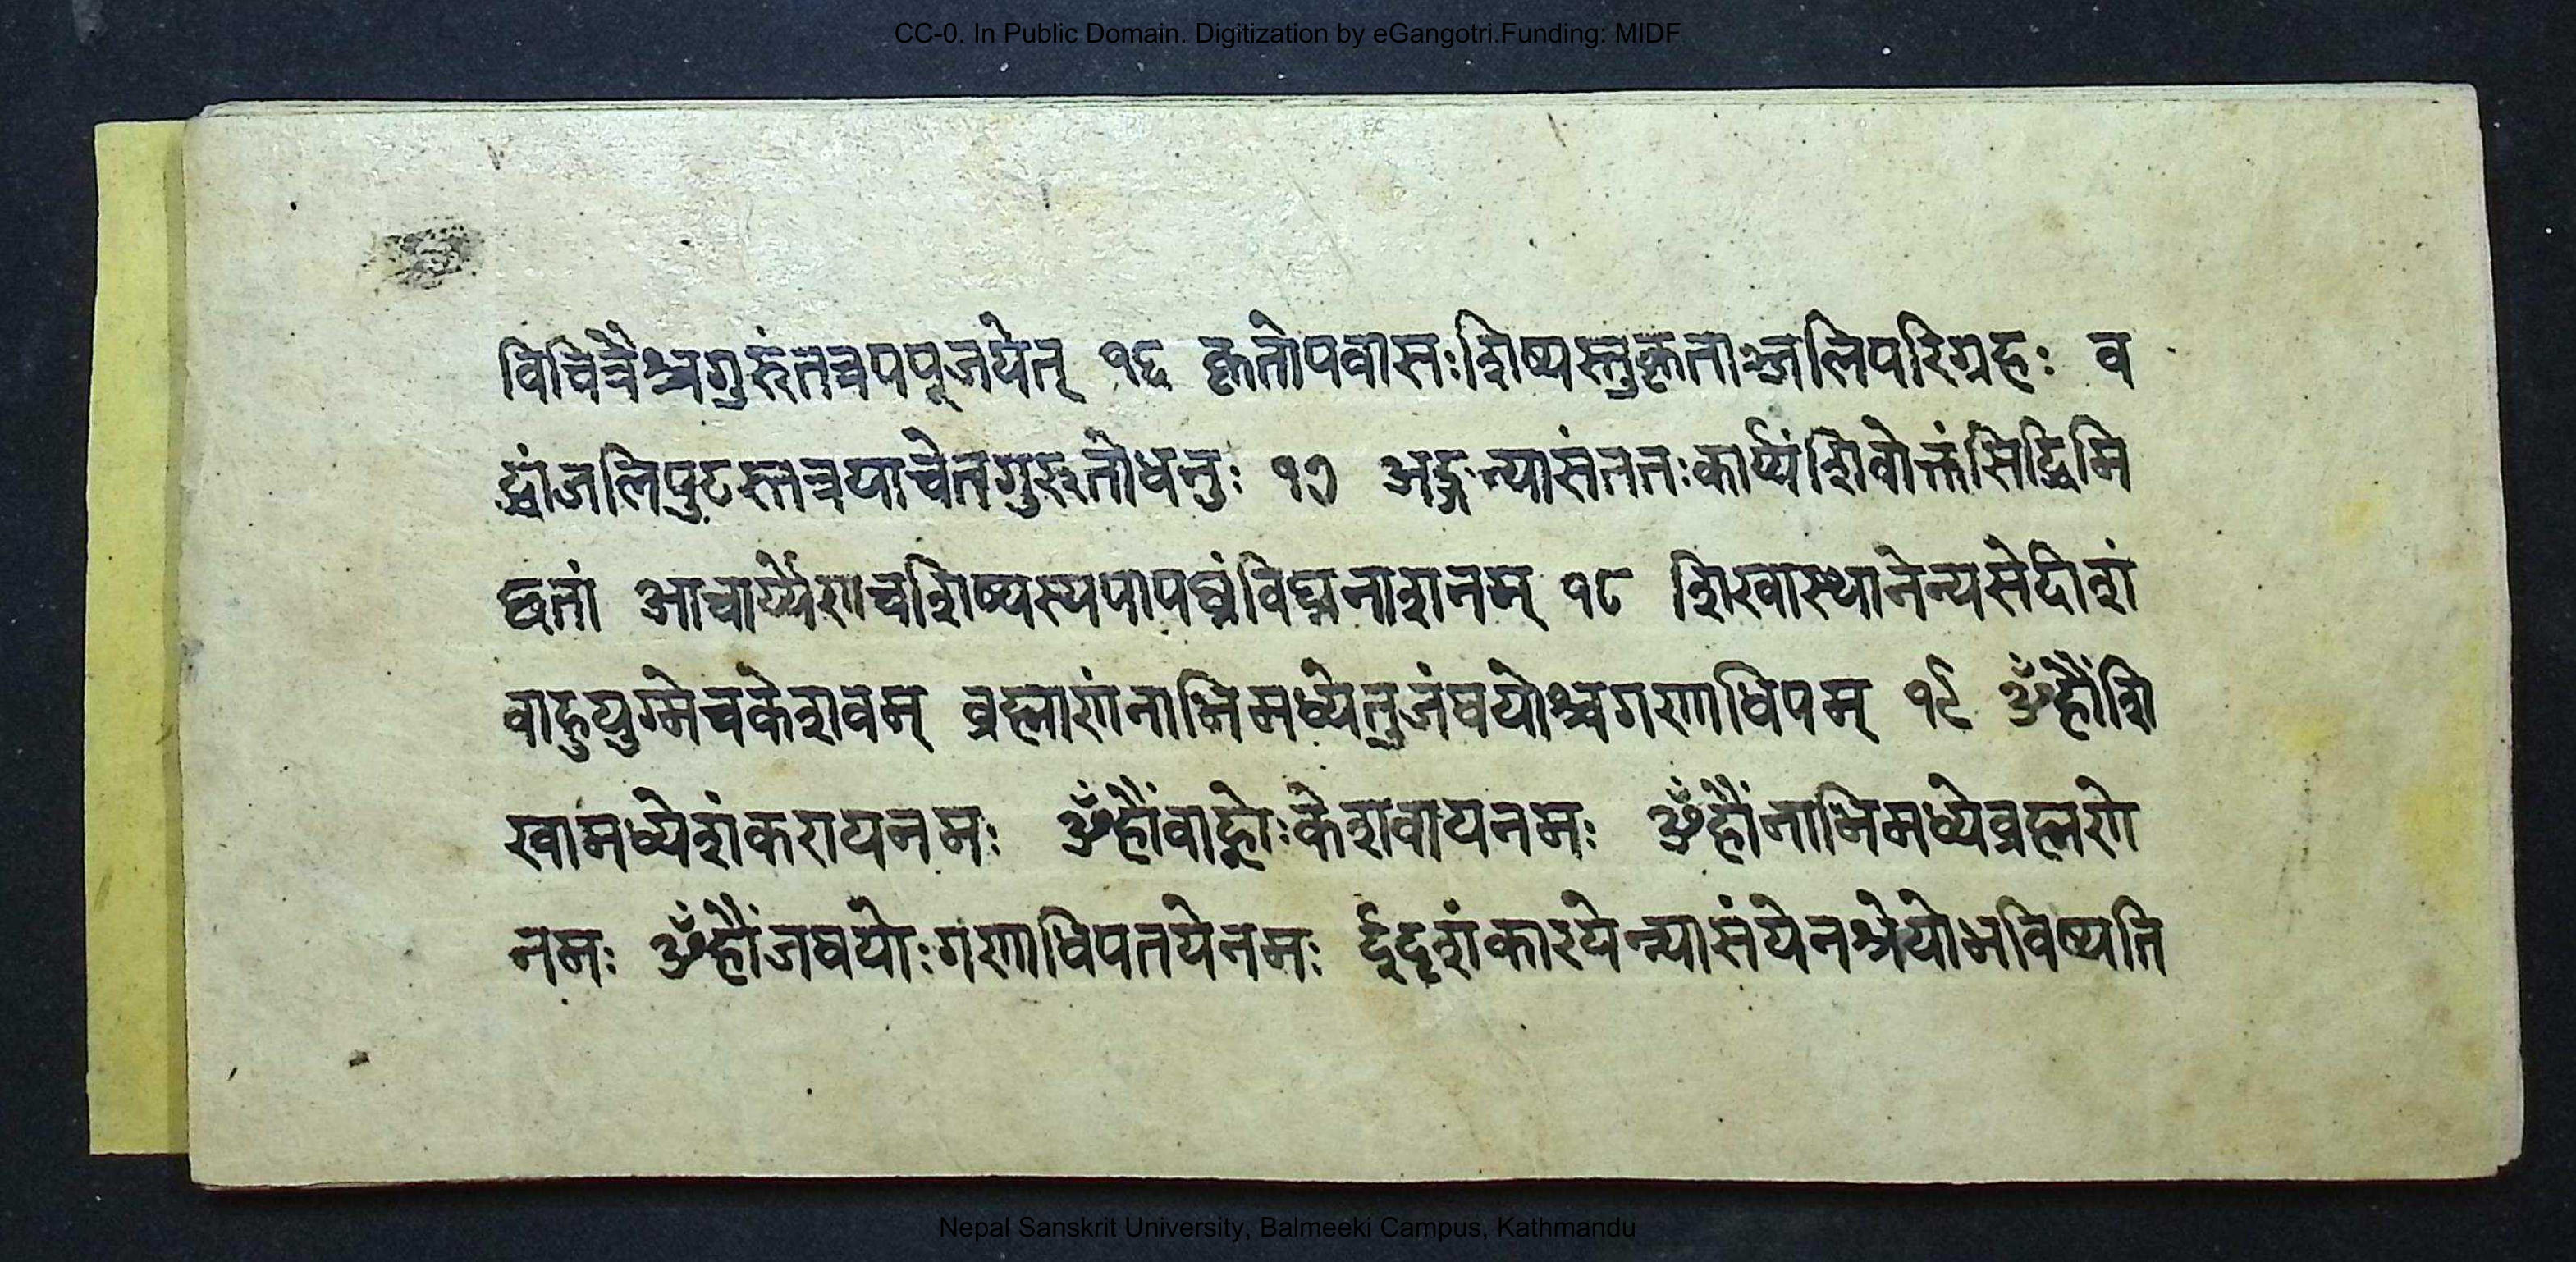 CC-0. In Public Domain. Digitization by eGangotri.Funding: MIDF
विचित्रैश्चगुरुंतत्रपपूजयेत् १६ कृतोपवासःशिष्यस्तुकृताञ्जलिपरिग्रहः व
द्धांजलिपुटस्तत्रयाचेतगुरुतोधनुः १७ अङ्गन्यासंततःकार्य्यंशिवोक्तंसिद्धिमि
छतां आचार्य्येणचशिष्यस्यपापघ्नंविघ्ननाशनम् १८ शिखास्थानेन्यसेदीशं
वाहुयुग्मेचकेशवम् व्रह्माणंनाभिमध्येतुजंघयोश्चगणाधिपम् १९ ॐहौंशि
खामध्येशंकरायनमः ॐहौंवाह्वोःकेशवायनमः ॐहौंनाभिमध्येव्रह्मणे
नमः ॐहौंजघयोःगणाधिपतयेनमः ईदृशंकारयेन्न्यासंयेनश्रेयोभविष्यति
Nepal Sanskrit University, Balmeeki Campus, Kathmandu